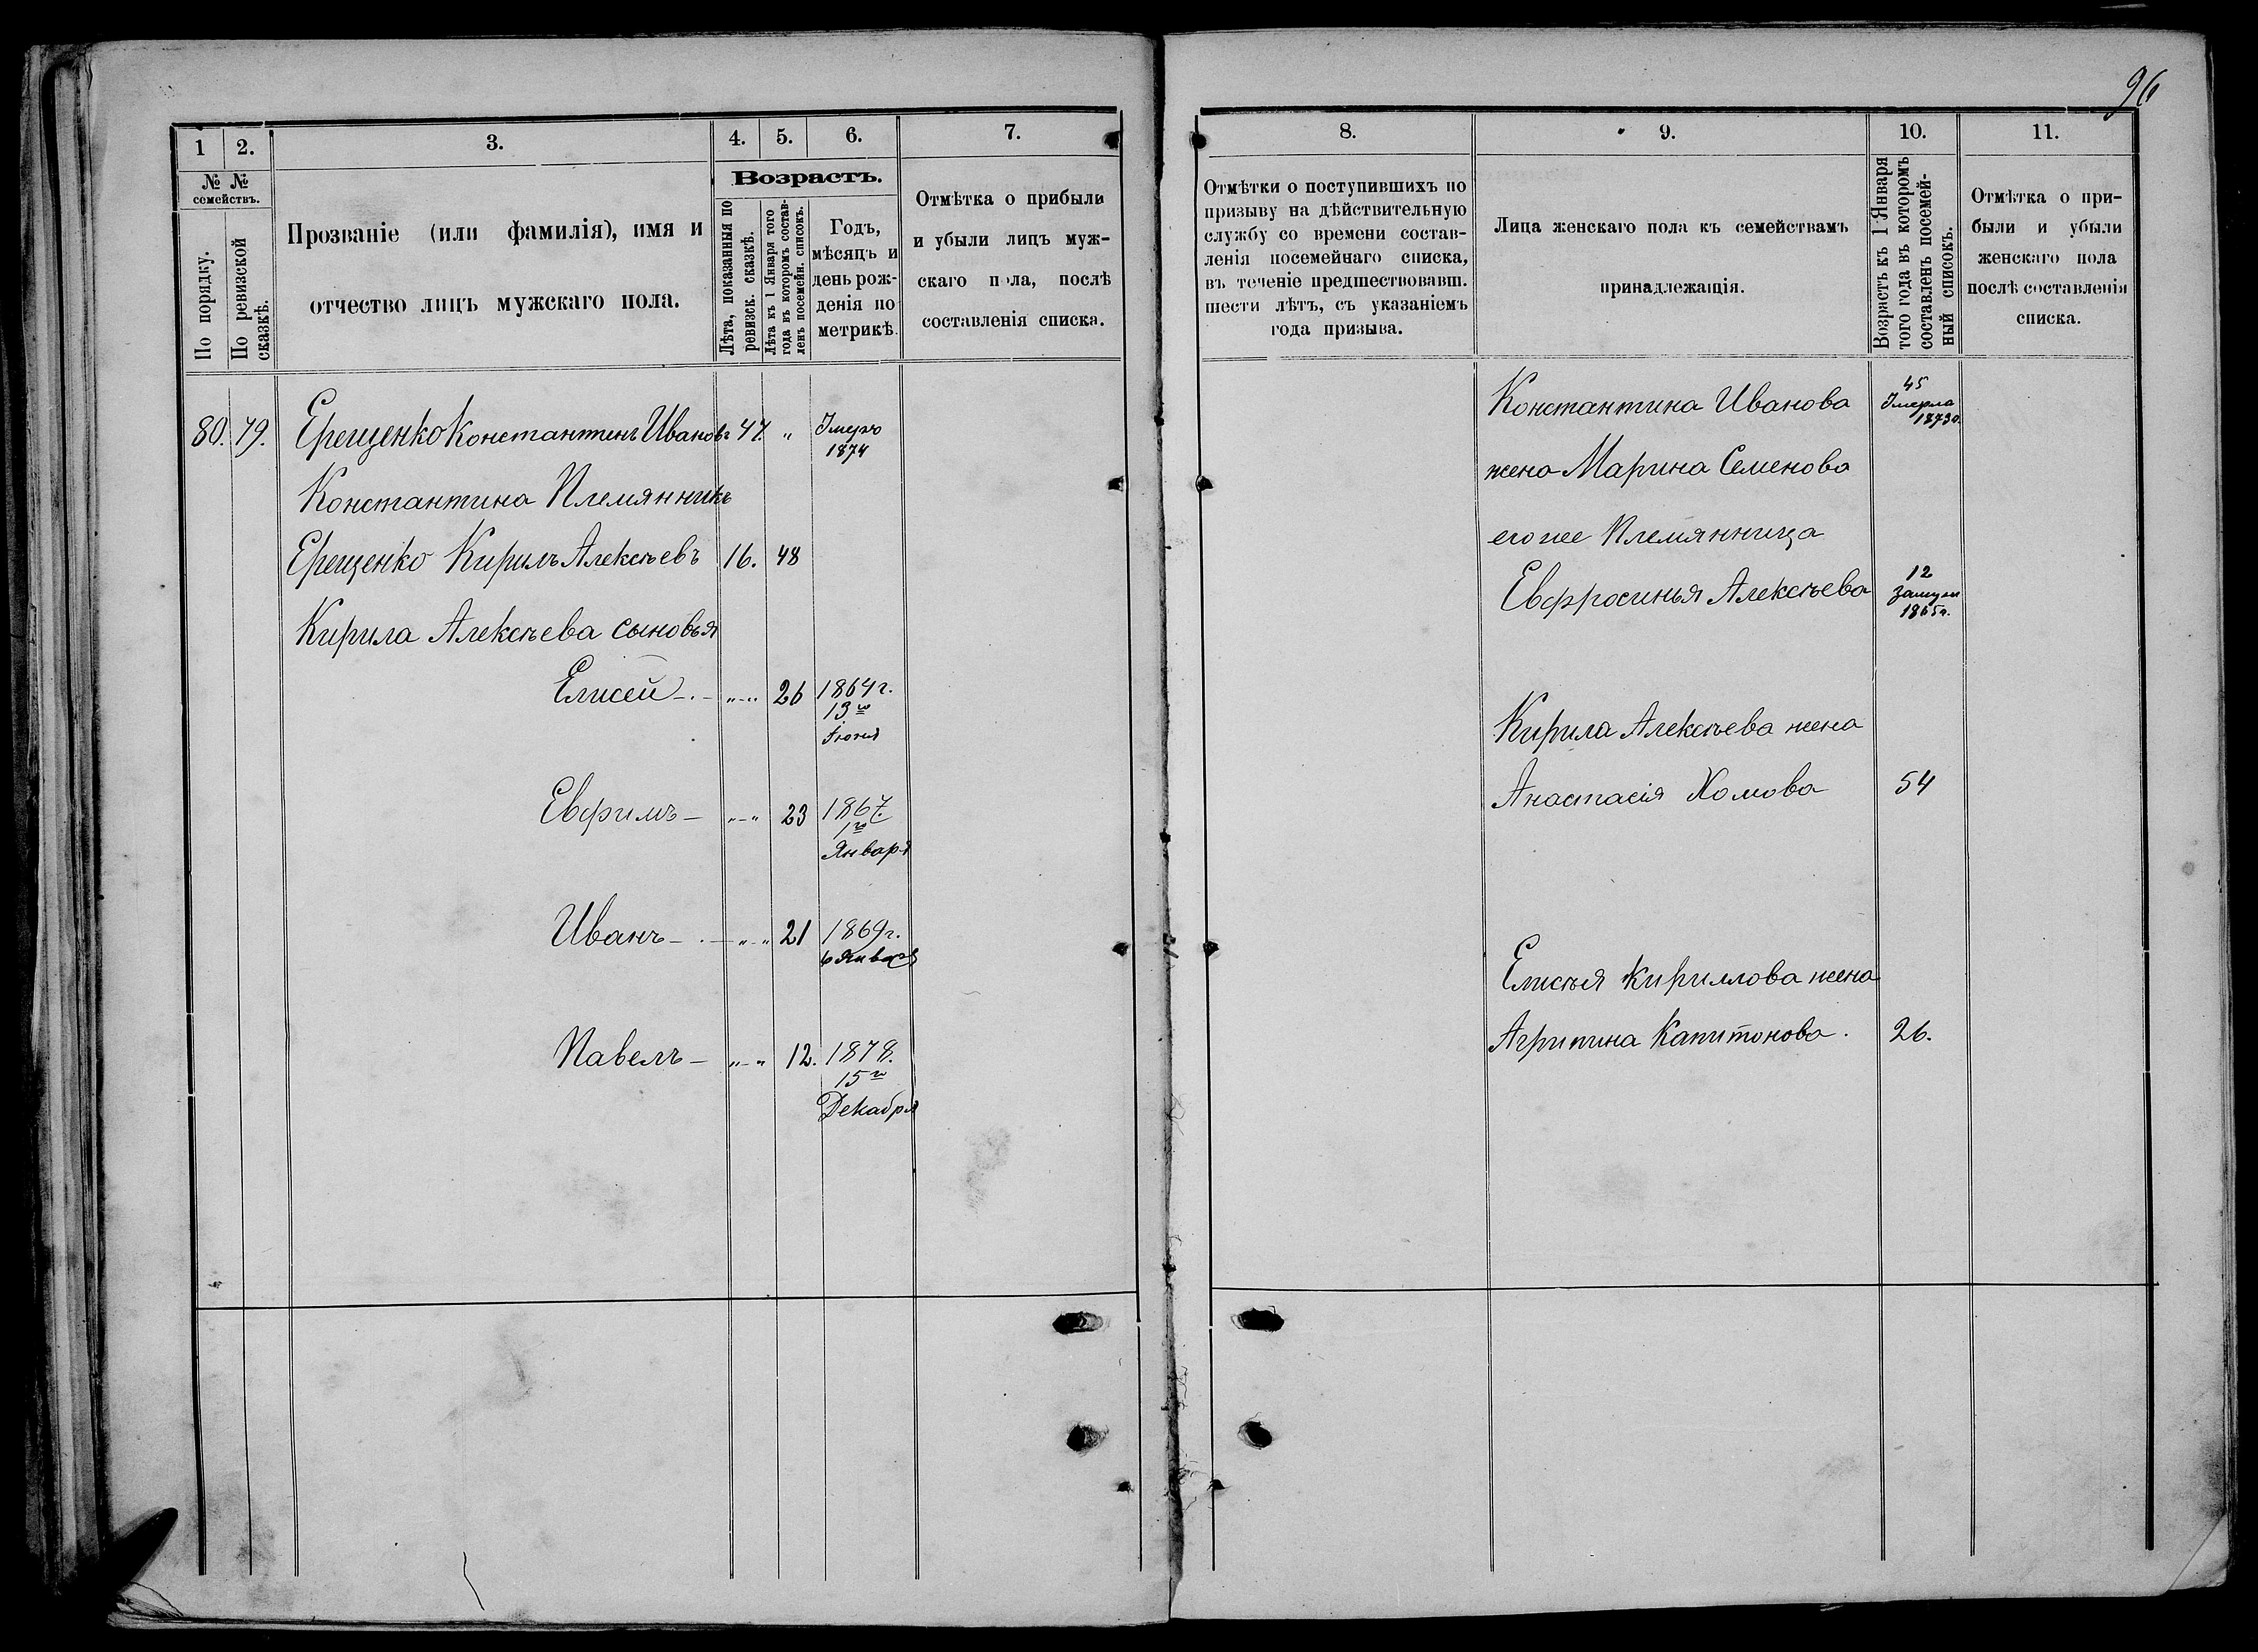 96
1
2.
3.
4.
5.
6.
7.
№ №
семействъ.
По порядку.
По ревизской
сказкѣ.
Прозваніе (или фамилія), имя и
отчество лицъ мужскаго пола.
Возрастъ.
Лѣта, показанныя по
ревизск. сказкѣ.
Лѣта къ 1 Января того
года въ которомъ состав-
ленъ посемейн. списокъ.
Годъ,
мѣсяцъ и
день рож-
денія по
метрикѣ.
Отмѣтка о прибыли
и убыли лицъ муж-
скаго пола, послѣ
составленія списка.
80. 79. Ерещенко Константинъ Ивановъ 47. "
Умеръ
1874
Константина Племянникъ
Ерещенко Кирилъ Алексѣевъ 16. 48
Кирила Алексѣева сыновья
Елисей -.- "-" 26 1864 г.
13го
Іюня
Евфимъ - "-" 23 1867.
1го
Января
Иванъ -.- "-" 21 1869 г.
6 Января
Павелъ - "-" 12. 1878.
15го
Декабря
8.
9.
10.
11.
Отмѣтки о поступившихъ по
призыву на дѣйствительную
службу со времени состав-
ленія посемейнаго списка,
въ теченіе предшествовавш.
шести лѣтъ, съ указаніемъ
года призыва.
Лица женскаго пола къ семействамъ
принадлежащія.
Возрастъ къ 1 Января
того года въ которомъ
составленъ посемей-
ный списокъ.
Отмѣтка о при-
были и убыли
женскаго пола
послѣ составленія
списка.
Константина Иванова
45
Умерла
1873г.
жена Марина Семенова
его же Племянница
Евфросинья Алексѣева
12
замуж
1865г.
Кирила Алексѣева жена
Анастасія Хомова 54
Елисѣя Кириллова жена
Агрипина Капитонова. 26.